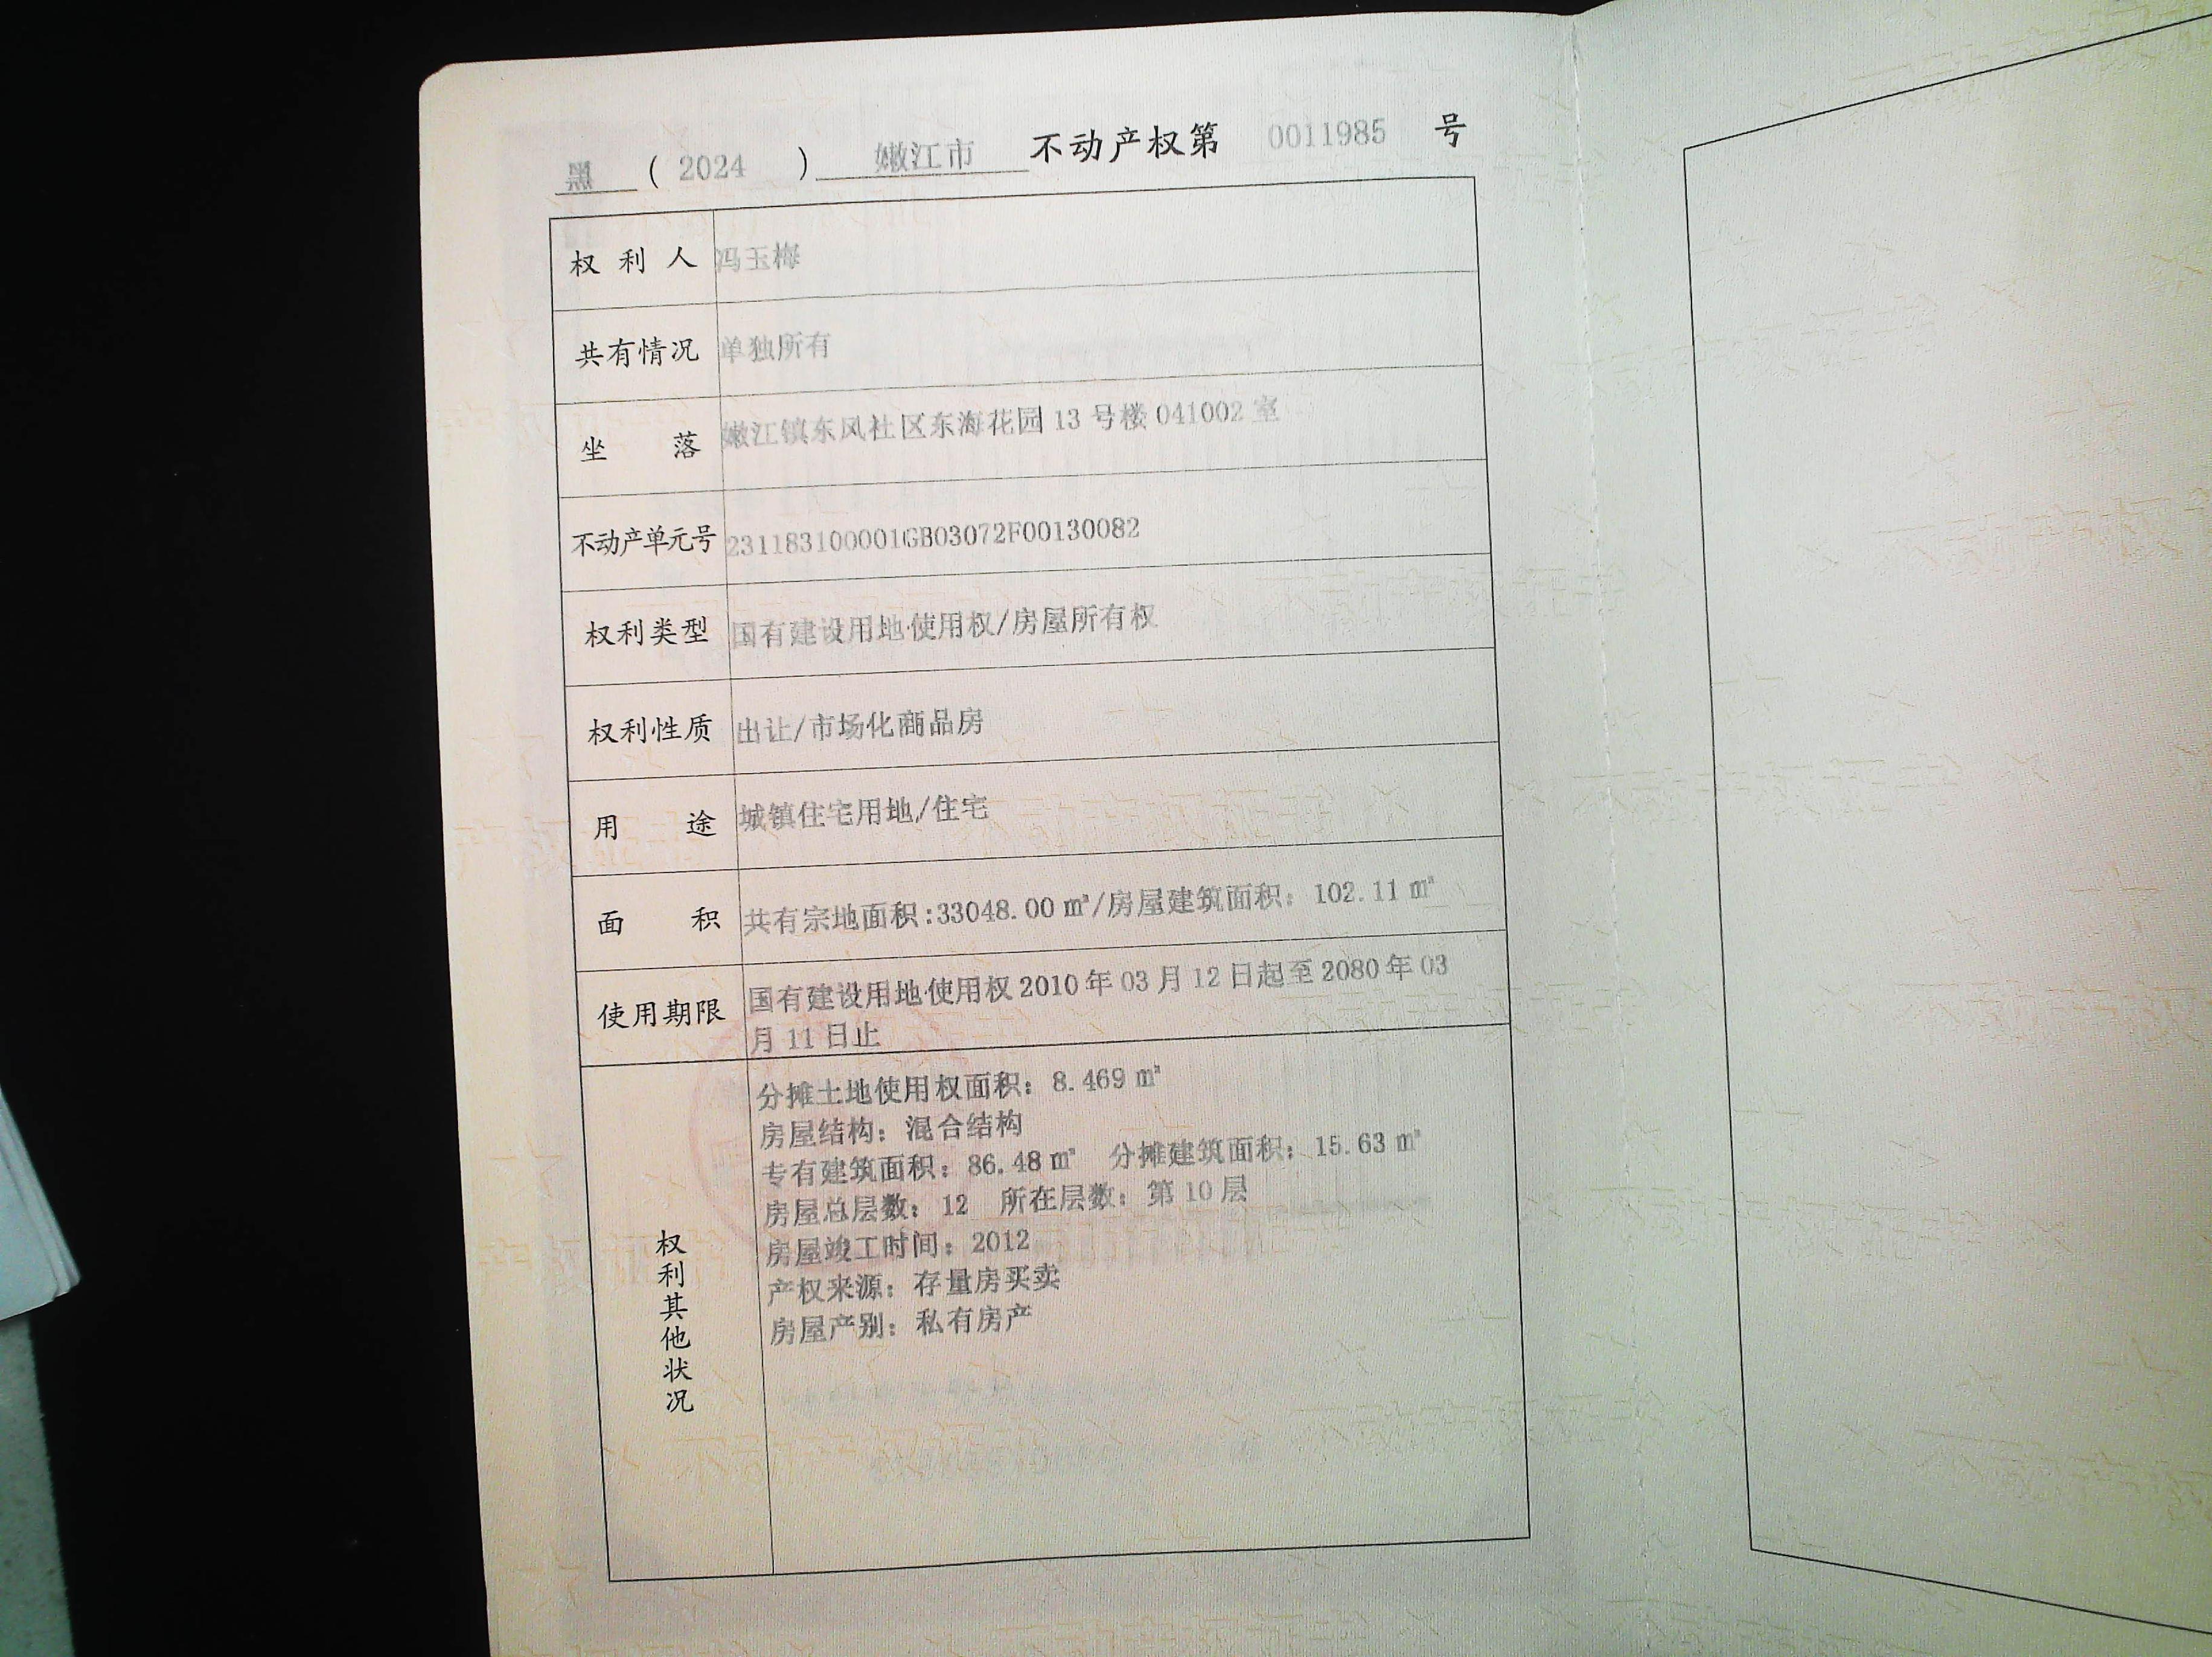 黑 ( 2024 ) 嫩江市 不动产权第 0011985 号
权利人 冯玉梅
共有情况 单独所有
坐落 嫩江镇东风社区东海花园 13 号楼 041002 室
不动产单元号 231183100001GB03072F00130082
权利类型 国有建设用地使用权/房屋所有权
权利性质 出让/市场化商品房
用途 城镇住宅用地/住宅
面积 共有宗地面积:33048.00 ㎡/房屋建筑面积: 102.11 ㎡
使用期限 国有建设用地使用权 2010 年 03 月 12 日起至 2080 年 03
月 11 日止
权利其他状况
分摊土地使用权面积: 8.469 ㎡
房屋结构: 混合结构
专有建筑面积: 86.48 ㎡ 分摊建筑面积: 15.63 ㎡
房屋总层数: 12 所在层数: 第 10 层
房屋竣工时间: 2012
产权来源: 存量房买卖
房屋产别: 私有房产